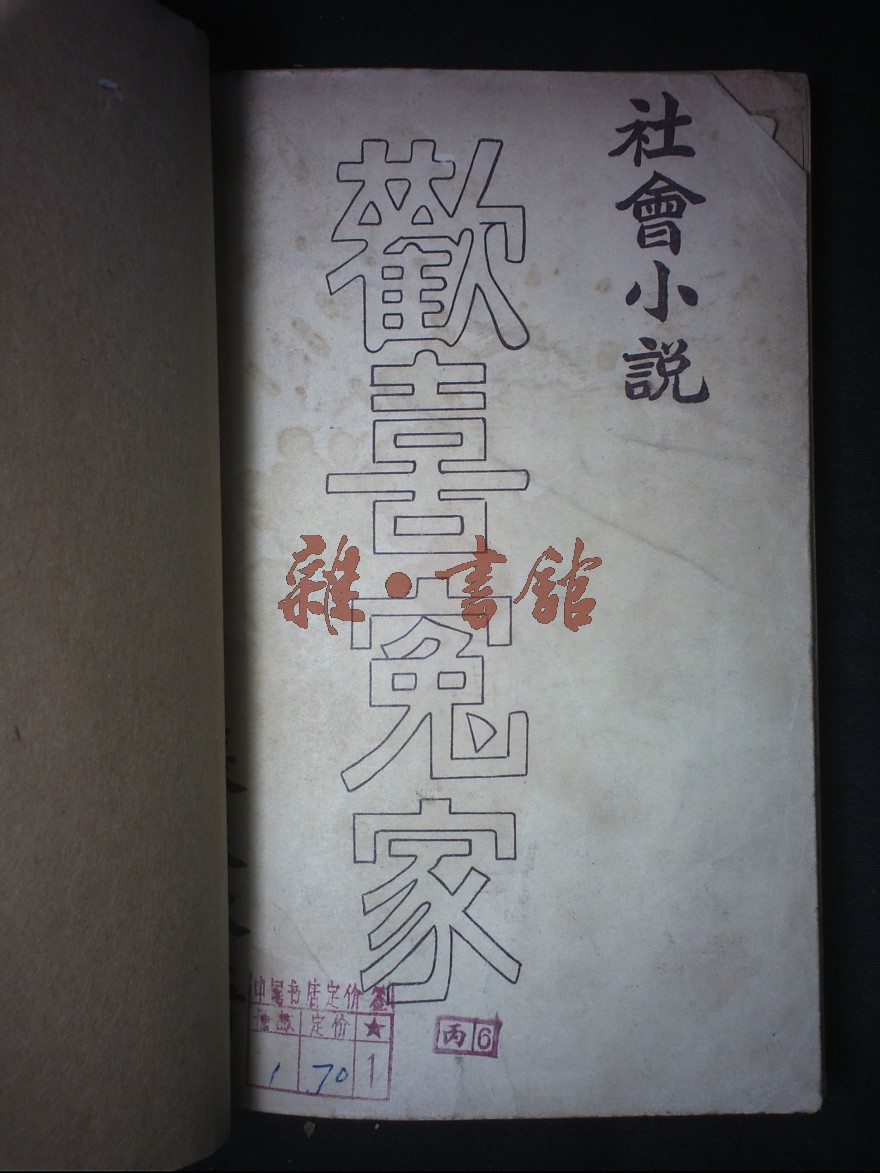 社會小説
歡喜冤家
雜·書館
中国书店定价签
册数 定价 ★
1 .70 1
丙 6